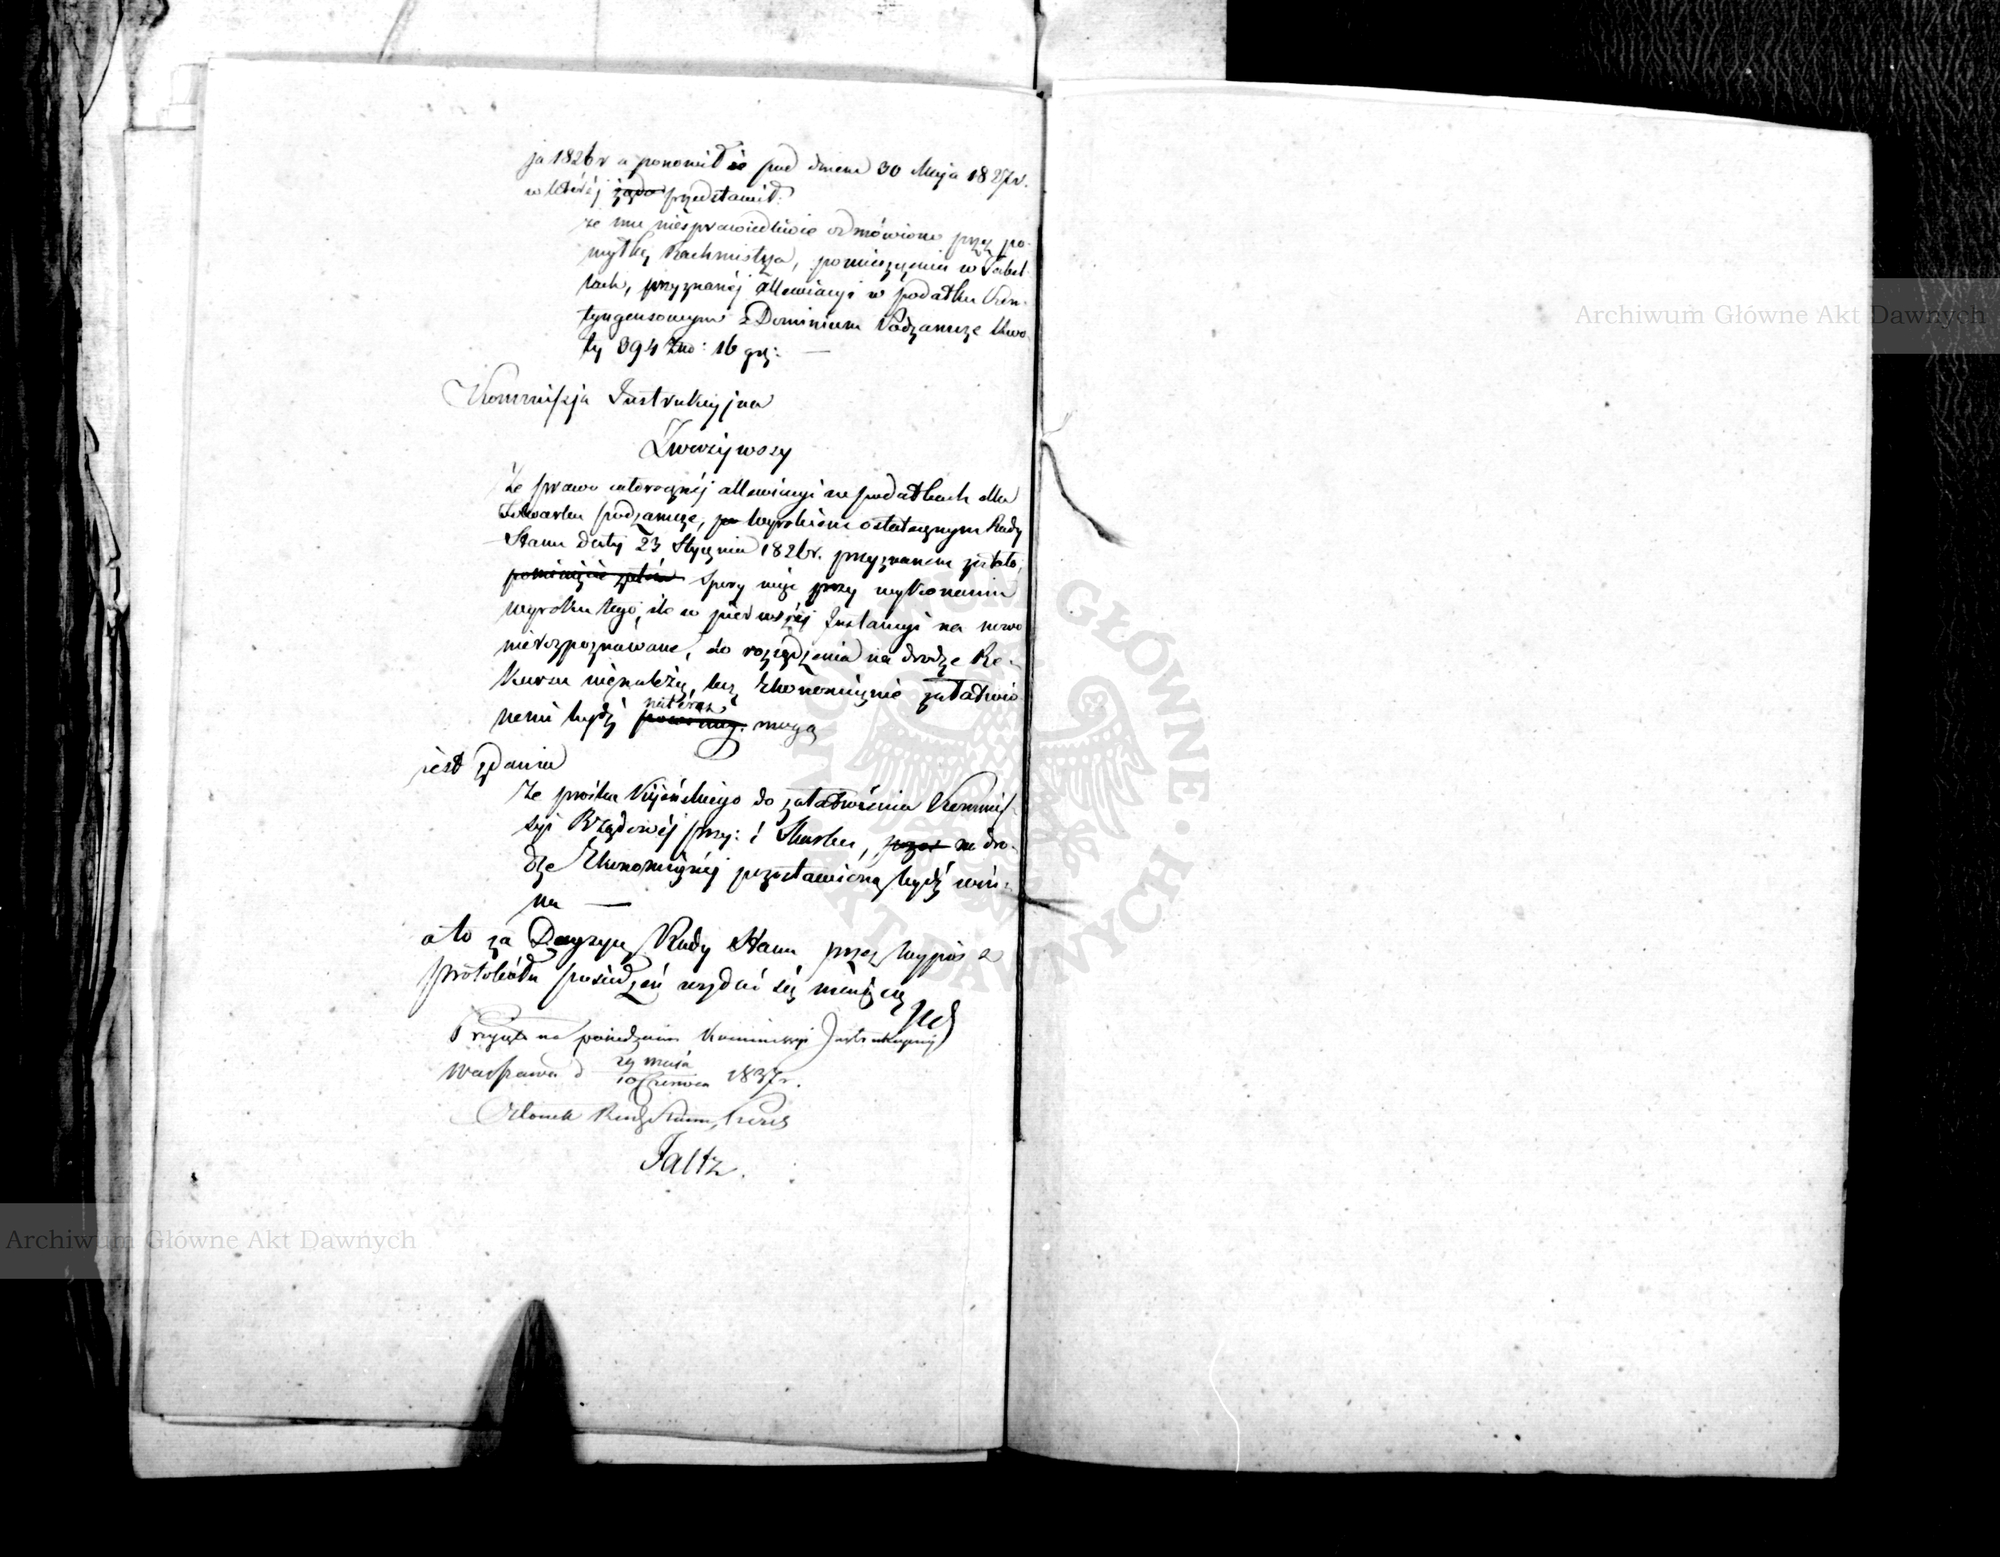 ja 1826 r a ponowił je pod dniem 30 Maja 1827 r.
w której żąda przedstawił:
że mu niesprawiedliwie odmówiono przez po-
myłkę Rachmistrza, pomieszczenia w Tabel-
lach, przyznanéj allewiacyi w podatku Kon-
tyngensowym z Dominium Podzamcze kwo
ty 394 Złło: 16 gr:
Kommissja Instrukcyjna
Zważywszy
Że prawo całorocznéj allewiacyi w podatkach dla
Folwarku podzamcze, po wyrokiem ostatecznym Rady
Stanu Daty 23 Stycznia 1826 r. przyznanem zostało,
Spory więc przy wykonaniu
wyroku tego, ile w pierwszéj Instancyi na nowo
nierozpoznawane, do rozsądzenia na drodze Re-
kursu nienależą, lecz Ekonomicznie załatwio
nemi bydź natéraz mogą
jest zdania
Że prośba Kijeńskiego do załatwienia Kommis-
syi Rządowéj przy: i Skarbu, na dro-
dze Ekonomicznéj pozostawioną bydź win-
na —
a to za Decyzyę Rady Stanu przez wypis z
protokółu posiedzeń wydać się mającą
Przyjęto na posiedzeniu Kommissyi Instrukcyjnéj
Warszawa d 29 maja
10 Czerwca 1837 r.
Członek Rady Stanu, Prezes
Faltz.
Archiwum Główne Akt Dawnych
Archiwum Główne Akt Dawnych
ARCHIWUM GŁÓWNE AKT DAWNYCH